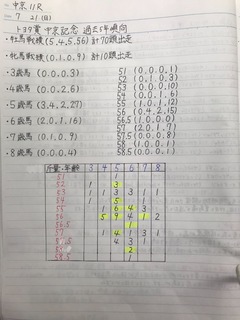 中京 11R
7 21.(日)
トヨタ賞 中京記念 過去5年傾向
・牡馬戦績(5.4.5.56)計70頭出走
・牝馬戦績(0.1.0.9)計10頭出走
・3歳馬(0.0.0.3) 51(0.0.0.1)
・4歳馬(0.0.2.6) 52(0.1.0.3)
・5歳馬(3.4.2.27) 53(0.0.0.10)
・6歳馬(2.0.1.16) 54(0.0.1.6)
・7歳馬(0.1.0.9) 55(1.0.1.12)
・8歳馬(0.0.0.4) 56(2.3.2.16)
56.5(1.0.0.0)
57(2.0.1.7)
57.5(0.0.0.8)
58(0.1.0.1)
58.5(0.0.0.1)
斤量・年齢 3 4 5 6 7 8
51 1
52 1 3
53 1 1 3 3 1 1
54 1 5 1
55 1 6 4 3
56 5 9 4 1 2
56.5 1
57 1 4 1 3 1
57.5 4 3 1
58 2
58.5 1